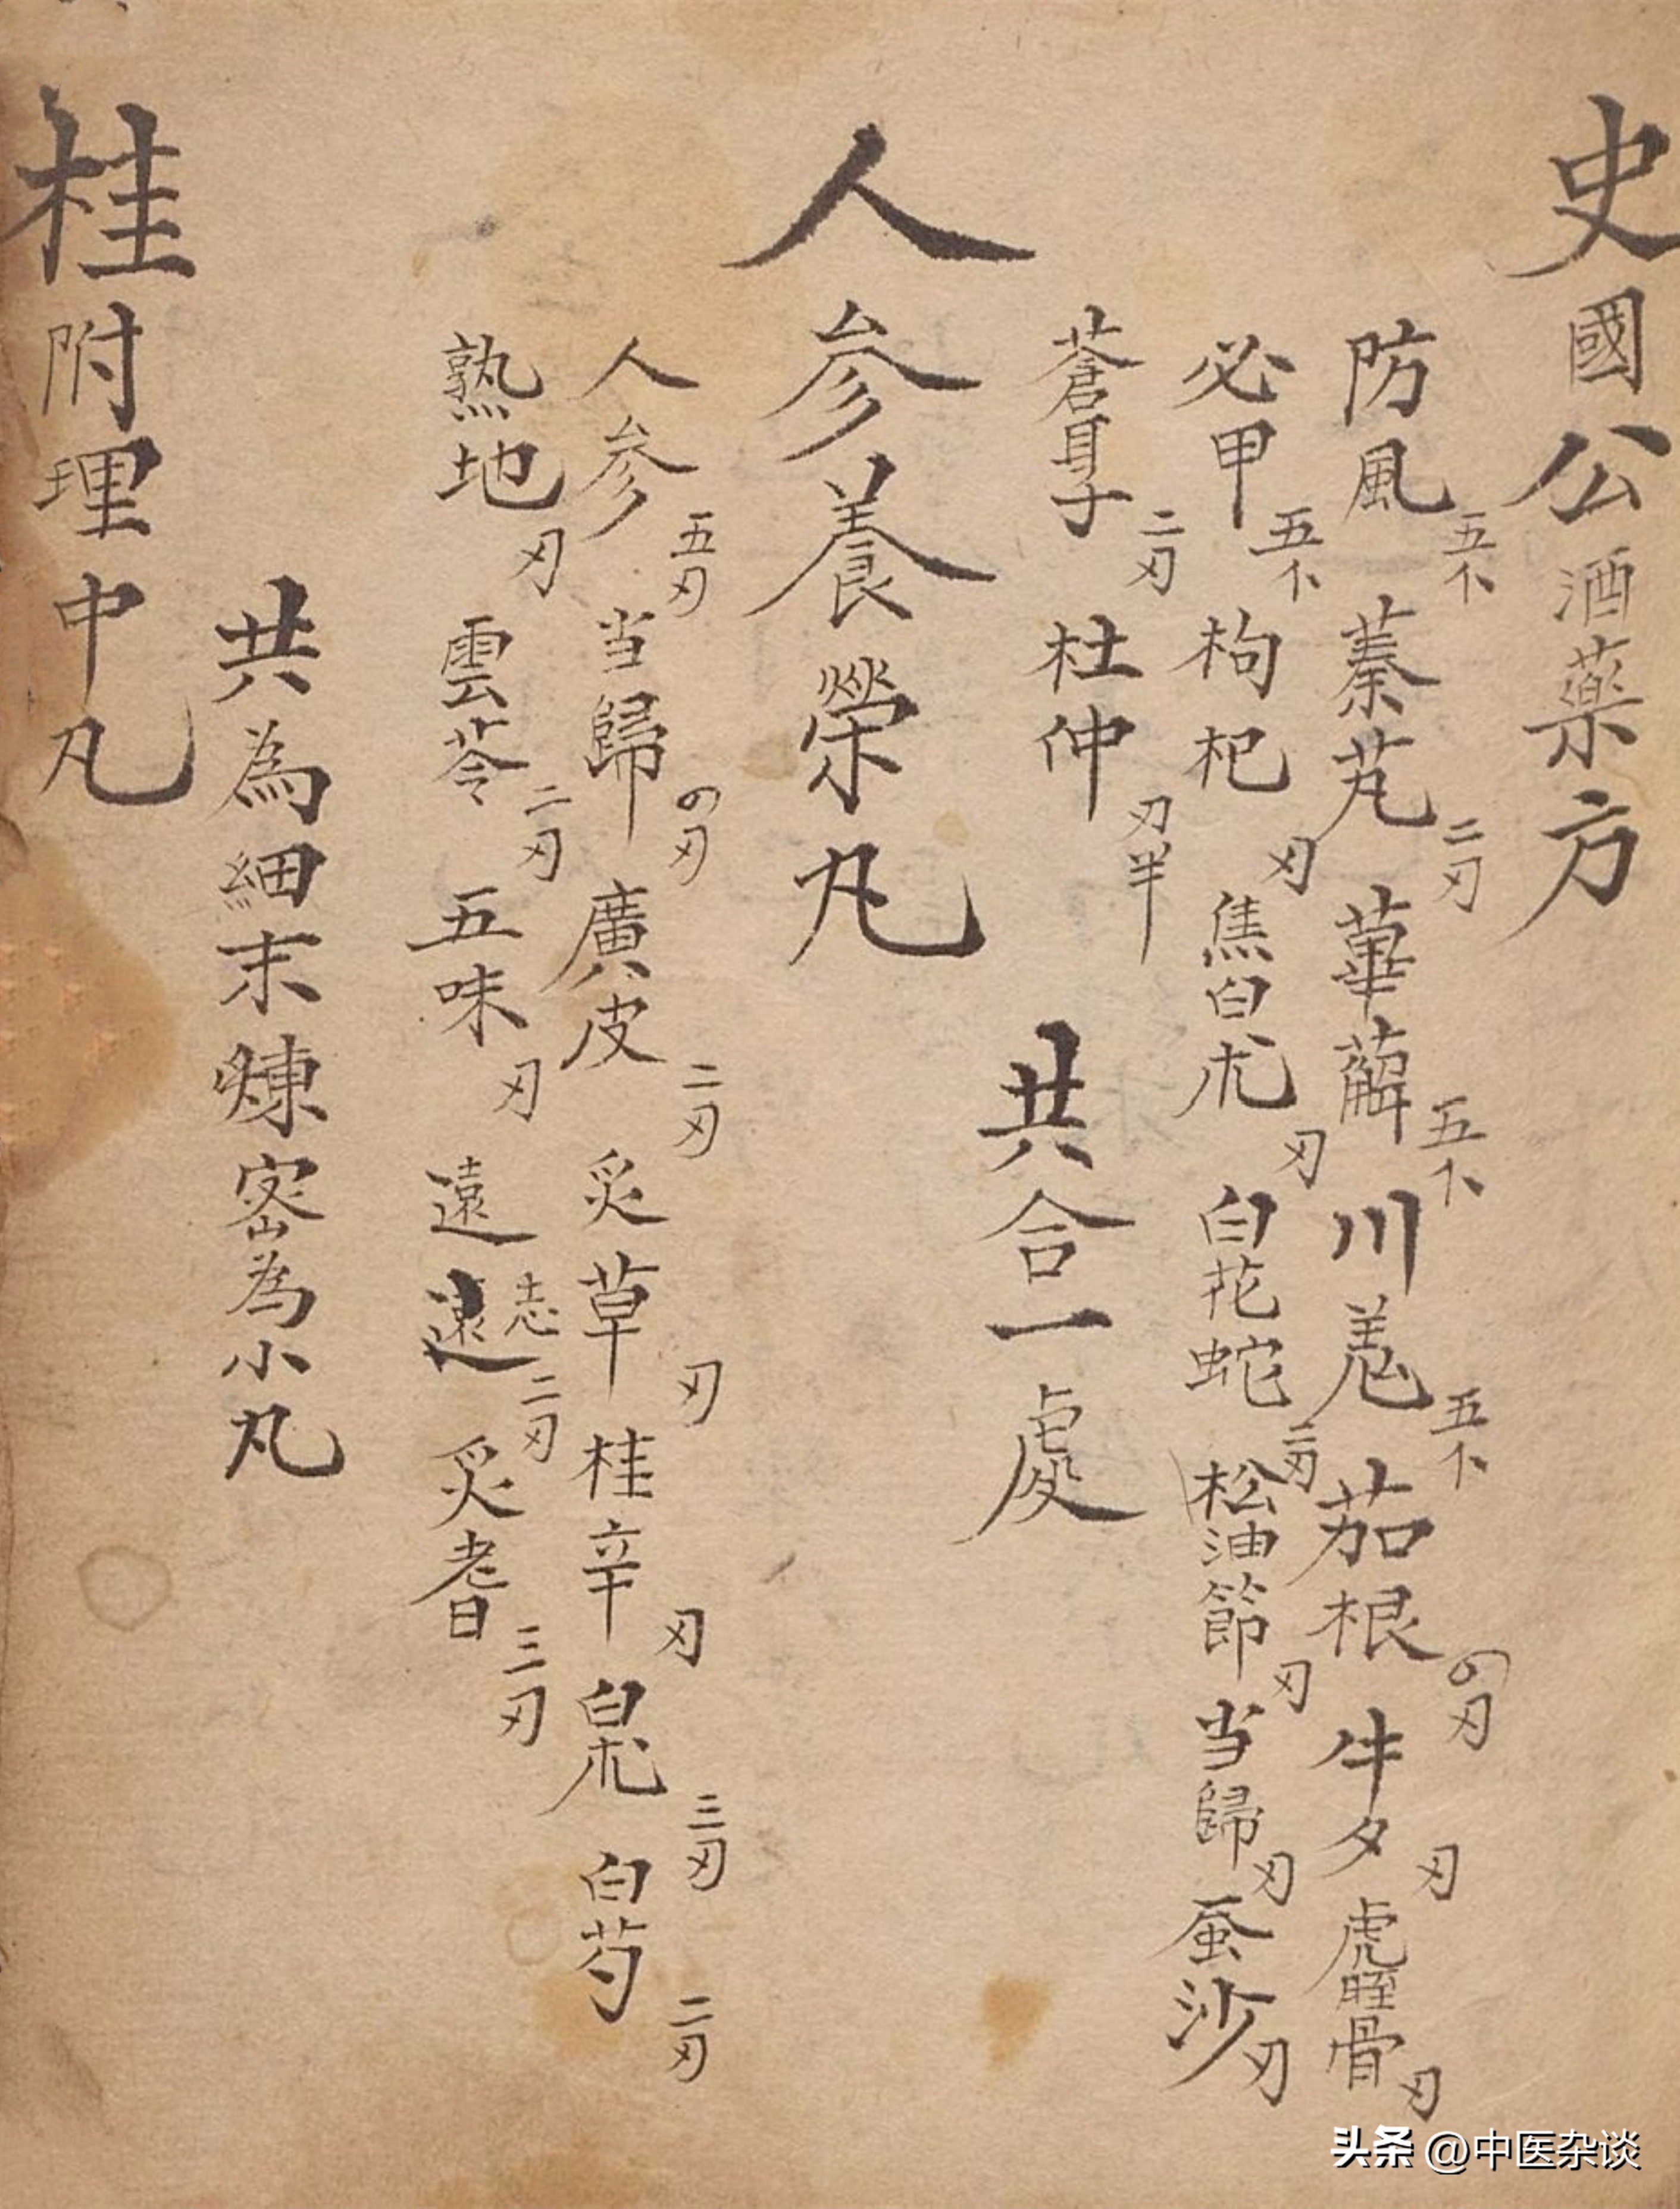 史國公酒藥方
防風五卜 蓁艽二刃 萆薢五卜 川羌五卜 茄根刃 牛夕刃 虎脛骨刃
必甲五卜 枸杞刃 焦白朮刃 白花蛇二刃 松油節刃 当歸刃 蚕沙刃
蒼耳子二刃 杜仲刃半 共合一處
人参養榮丸
人参五刃 当歸刃 廣皮二刃 炙草刃 桂辛刃 白朮三刃 白芍二刃
熟地刃 雲苓二刃 五味刃 遠志二刃 炙耆三刃
共為細末煉密為小丸
桂附理中丸
头条 @中医杂谈